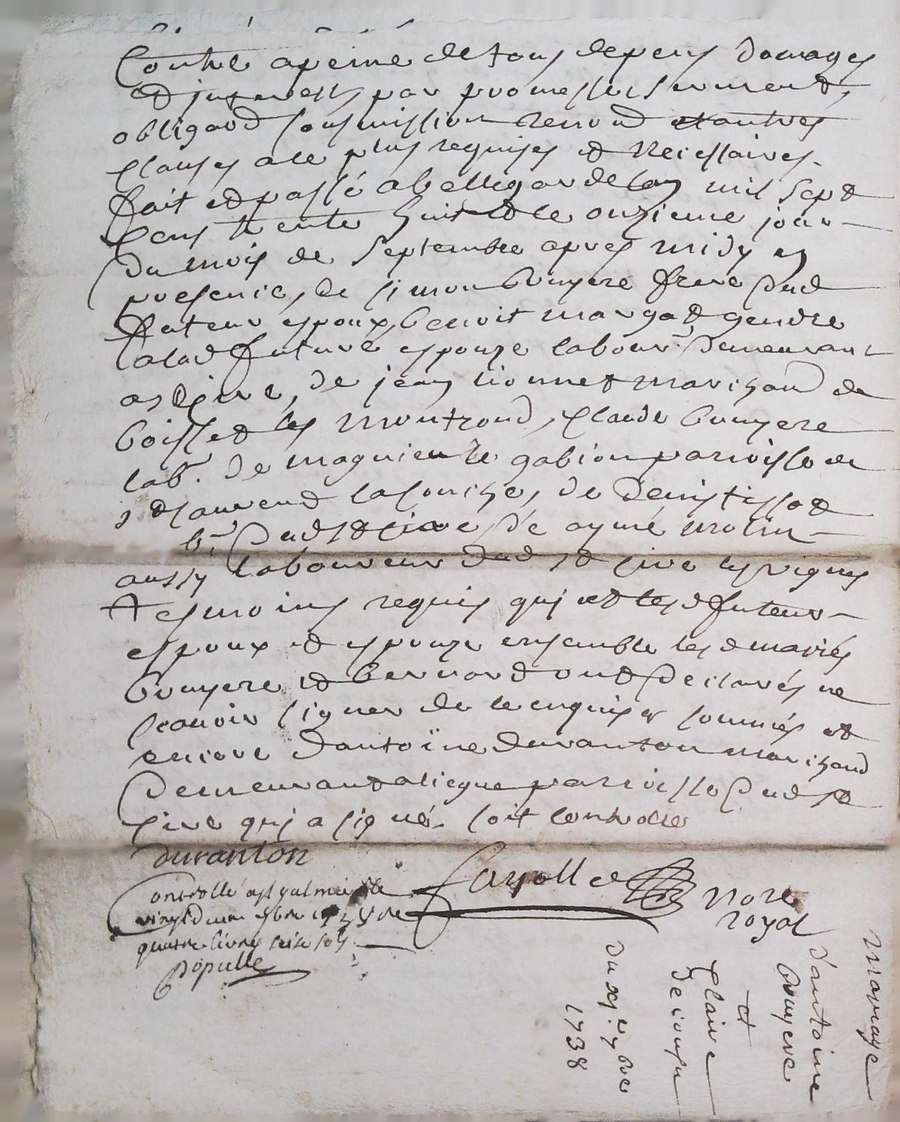 Contre a peine de tous depens domages
et interests par promesses serment
obligaon soumission renond et autres
clauses a ce plus requises et necessaires.
fait et passé a bellegarde lan mil sept
cens trente huit et le onzieme jour
du mois de septembre apres midy en
presence, de simon bruyere frere dud
futeur espoux, benoit margat gendre
a lad future espouze labour demeurant
a st Cire, de jean lionnet marchand de
boisset les montrond, Claude bruyere
lab. de magnieu le gabion parroisse de
st laurend la conche, de denis tissot
br dud st Cire de aymé molin
aussy laboureur dud st cire les vignes
tesmoins requis qui et lesd futeur
espoux et espouze ensemble lesd mariés
bruyere et bernard ont declarés ne
scavoir signer de ce enquis et sommés et
encore dantoine duranton marchand
demeurant a parroisse dud st
cire qui a signé. soit controllé
duranton
Controllé a st galmier le
vingt deux 7bre 1738 re
quatre livres seize sols
Populle
Fayolle Nore
royal
mariage
d'antoine
bruyere
et
Claire
du XI 7bre
1738